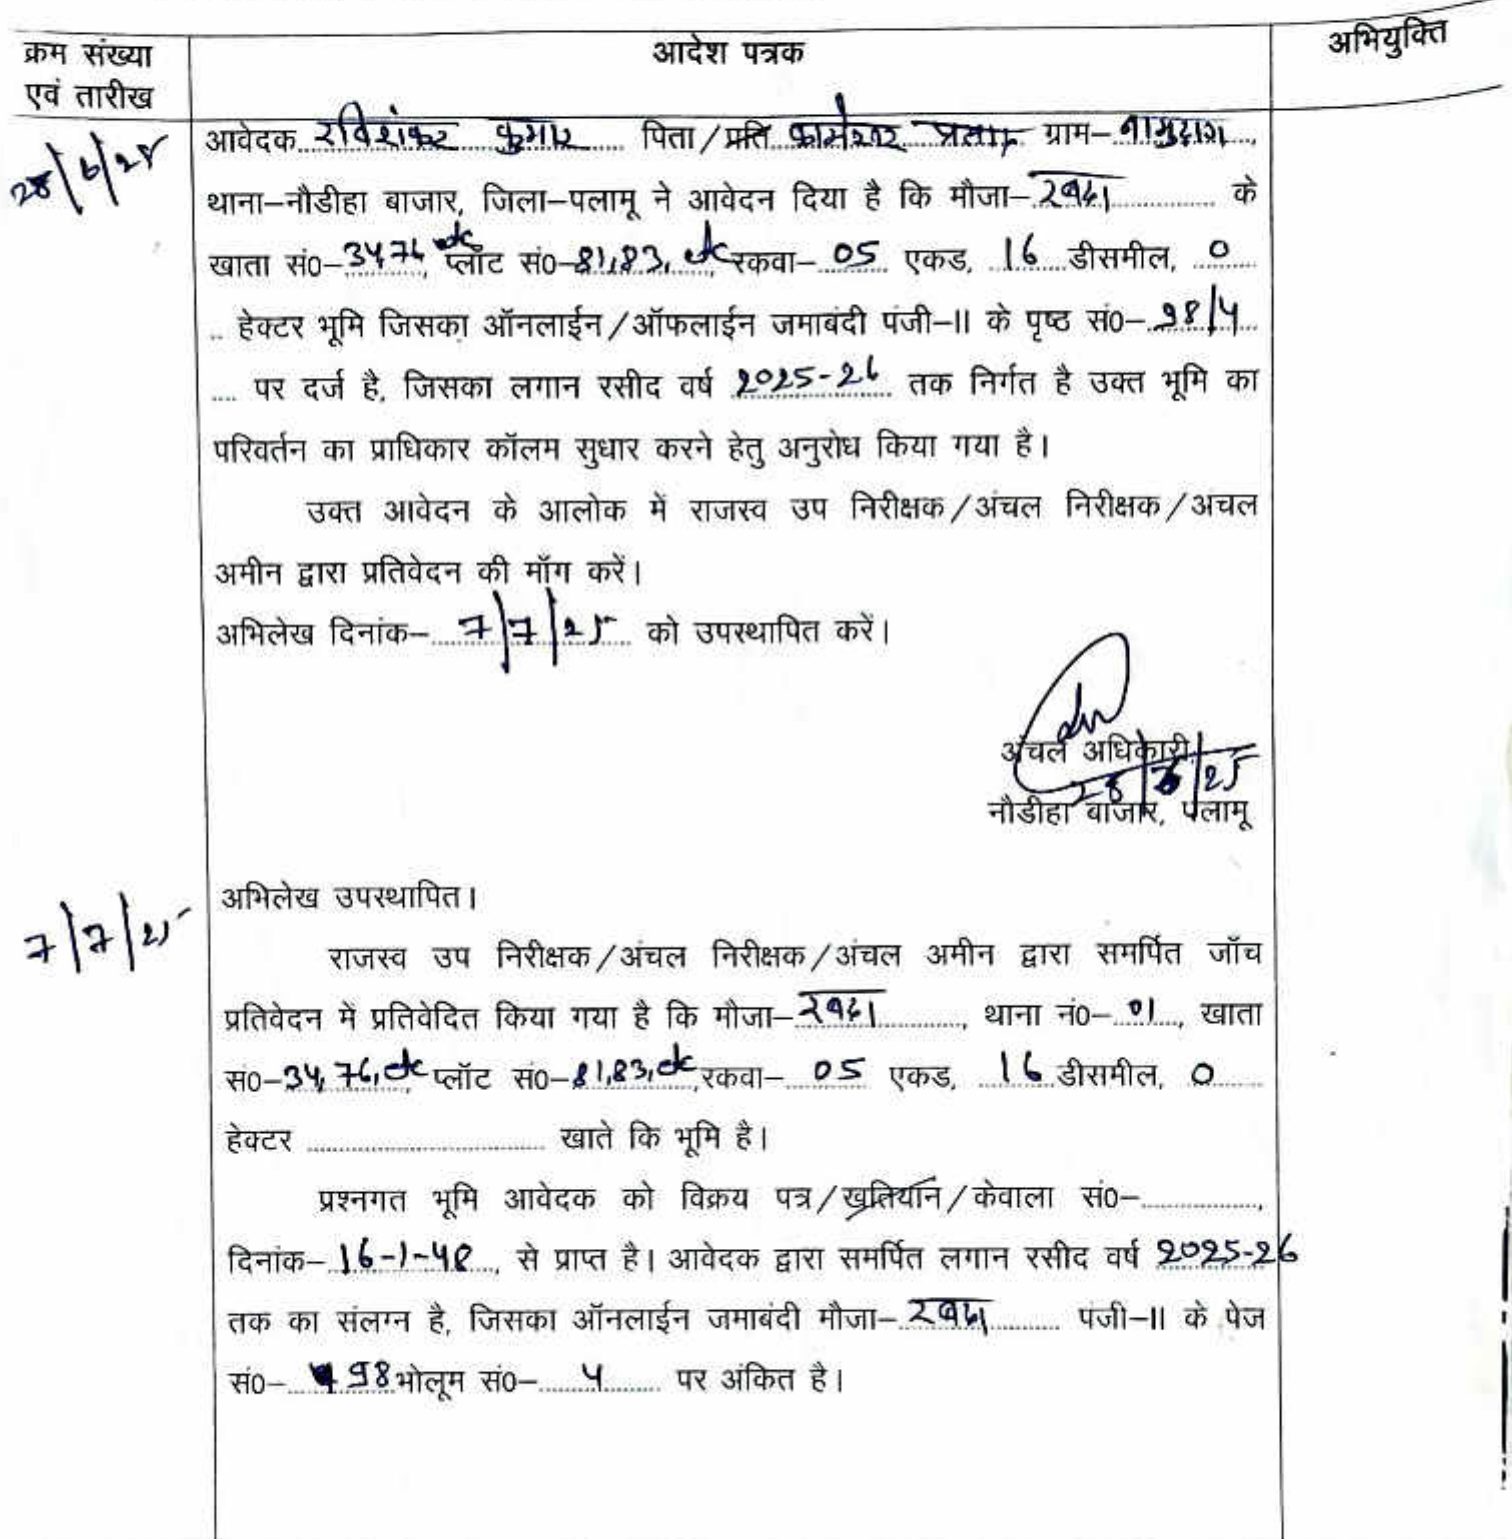 क्रम संख्या एवं तारीख
आदेश पत्रक
अभियुक्ति
28/6/25
आवेदक रविशंकर कुमार पिता/प्रति कामेश्वर प्रसाद ग्राम-
थाना-नौडीहा बाजार, जिला-पलामू ने आवेदन दिया है कि मौजा- के
खाता सं0-34,76 etc प्लॉट सं0-81,83, etc रकवा- 05 एकड, 16 डीसमील, 0
.. हेक्टर भूमि जिसका ऑनलाईन/ऑफलाईन जमाबंदी पंजी-II के पृष्ठ सं0- 98/4
.... पर दर्ज है, जिसका लगान रसीद वर्ष 2025-26 तक निर्गत है उक्त भूमि का
परिवर्तन का प्राधिकार कॉलम सुधार करने हेतु अनुरोध किया गया है।
उक्त आवेदन के आलोक में राजस्व उप निरीक्षक/अंचल निरीक्षक/अचल
अमीन द्वारा प्रतिवेदन की माँग करें।
अभिलेख दिनांक- 7/7/25 को उपस्थापित करें।
अंचल अधिकारी,
28/6/25
नौडीहा बाजार, पलामू
7/7/25
अभिलेख उपस्थापित।
राजस्व उप निरीक्षक/अंचल निरीक्षक/अंचल अमीन द्वारा समर्पित जाँच
प्रतिवेदन में प्रतिवेदित किया गया है कि मौजा- , थाना नं0- 01, खाता
सं0-34, 76, etc प्लॉट सं0-81,83, etc, रकवा- 05 एकड, 16 डीसमील, 0
हेक्टर .................... खाते कि भूमि है।
प्रश्नगत भूमि आवेदक को विक्रय पत्र/खतियान/केवाला सं0-..............,
दिनांक- 16-1-48, से प्राप्त है। आवेदक द्वारा समर्पित लगान रसीद वर्ष 2025-26
तक का संलग्न है, जिसका ऑनलाईन जमाबंदी मौजा- पंजी-II के पेज
सं0- 98 भोलूम सं0- 4 पर अंकित है।